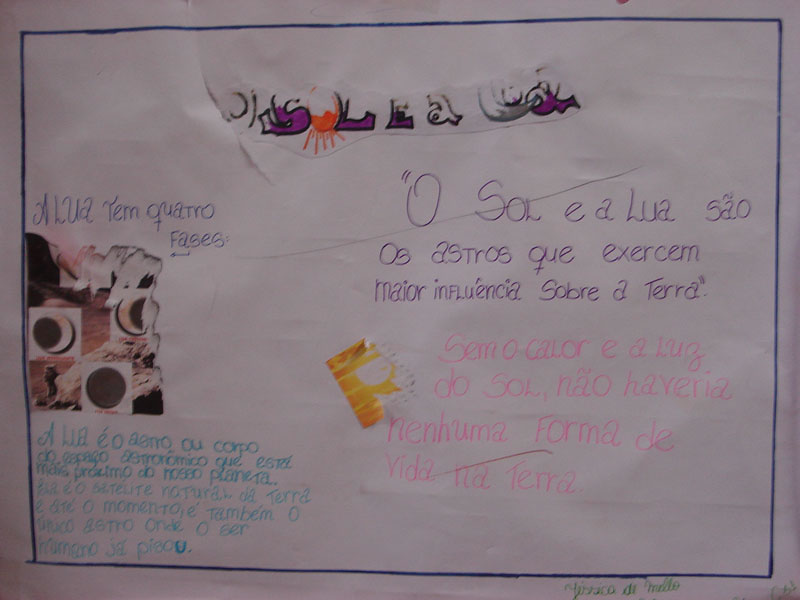 O SOL E a LUA
A LUA Tem quatro
Fases:
"O Sol e a Lua são
Os astros que exercem
maior influência sobre a Terra".
Sem o calor e a luz
do Sol, não haveria
nenhuma forma de
vida na Terra.
A LUA é o astro, ou corpo
do espaço astronômico que está
mais próximo do nosso planeta.
Ela é o satélite natural da Terra
e até o momento, é também o
único astro onde o ser
humano já pisou.
Jéssica de Mello